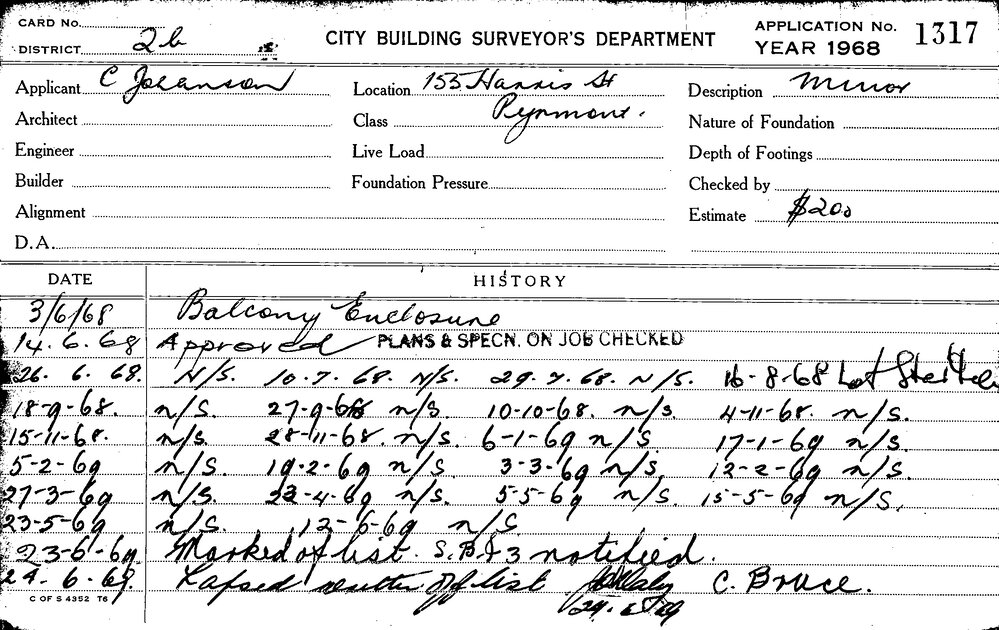 CARD No.
DISTRICT 2b
CITY BUILDING SURVEYOR'S DEPARTMENT
APPLICATION No. 1317
YEAR 1968
Applicant C Johanson
Location 155 Harris St
Description Minor
Architect
Class Pyrmont.
Nature of Foundation
Engineer
Live Load
Depth of Footings
Builder
Foundation Pressure
Checked by
Alignment
Estimate $200
D.A.
DATE HISTORY
3/6/68 Balcony Enclosure
14.6.68 Approved PLANS & SPECN. ON JOB CHECKED
26.6.68. N/S. 10.7.68. N/S. 29.7.68. N/S. 16-8-68 Not Started
18-9-68. n/S. 27-9-68 n/S. 10-10-68. n/s. 4-11-68. n/S.
15-11-68. n/s. 28-11-68. n/S. 6-1-69 n/S. 17-1-69 n/S.
5-2-69 n/S. 19-2-69 n/S 3-3-69 n/S. 12-2-69 n/S.
27-3-69 n/S. 23-4-69 n/S. 5-5-69 n/S. 15-5-69 n/S.
23-5-69 n/S. 12-6-69 n/S
23-6-69 Marked of list. S.B.I 3 notified.
24.6.69. Lapsed written off list C. Bruce.
C OF S 4352 T6